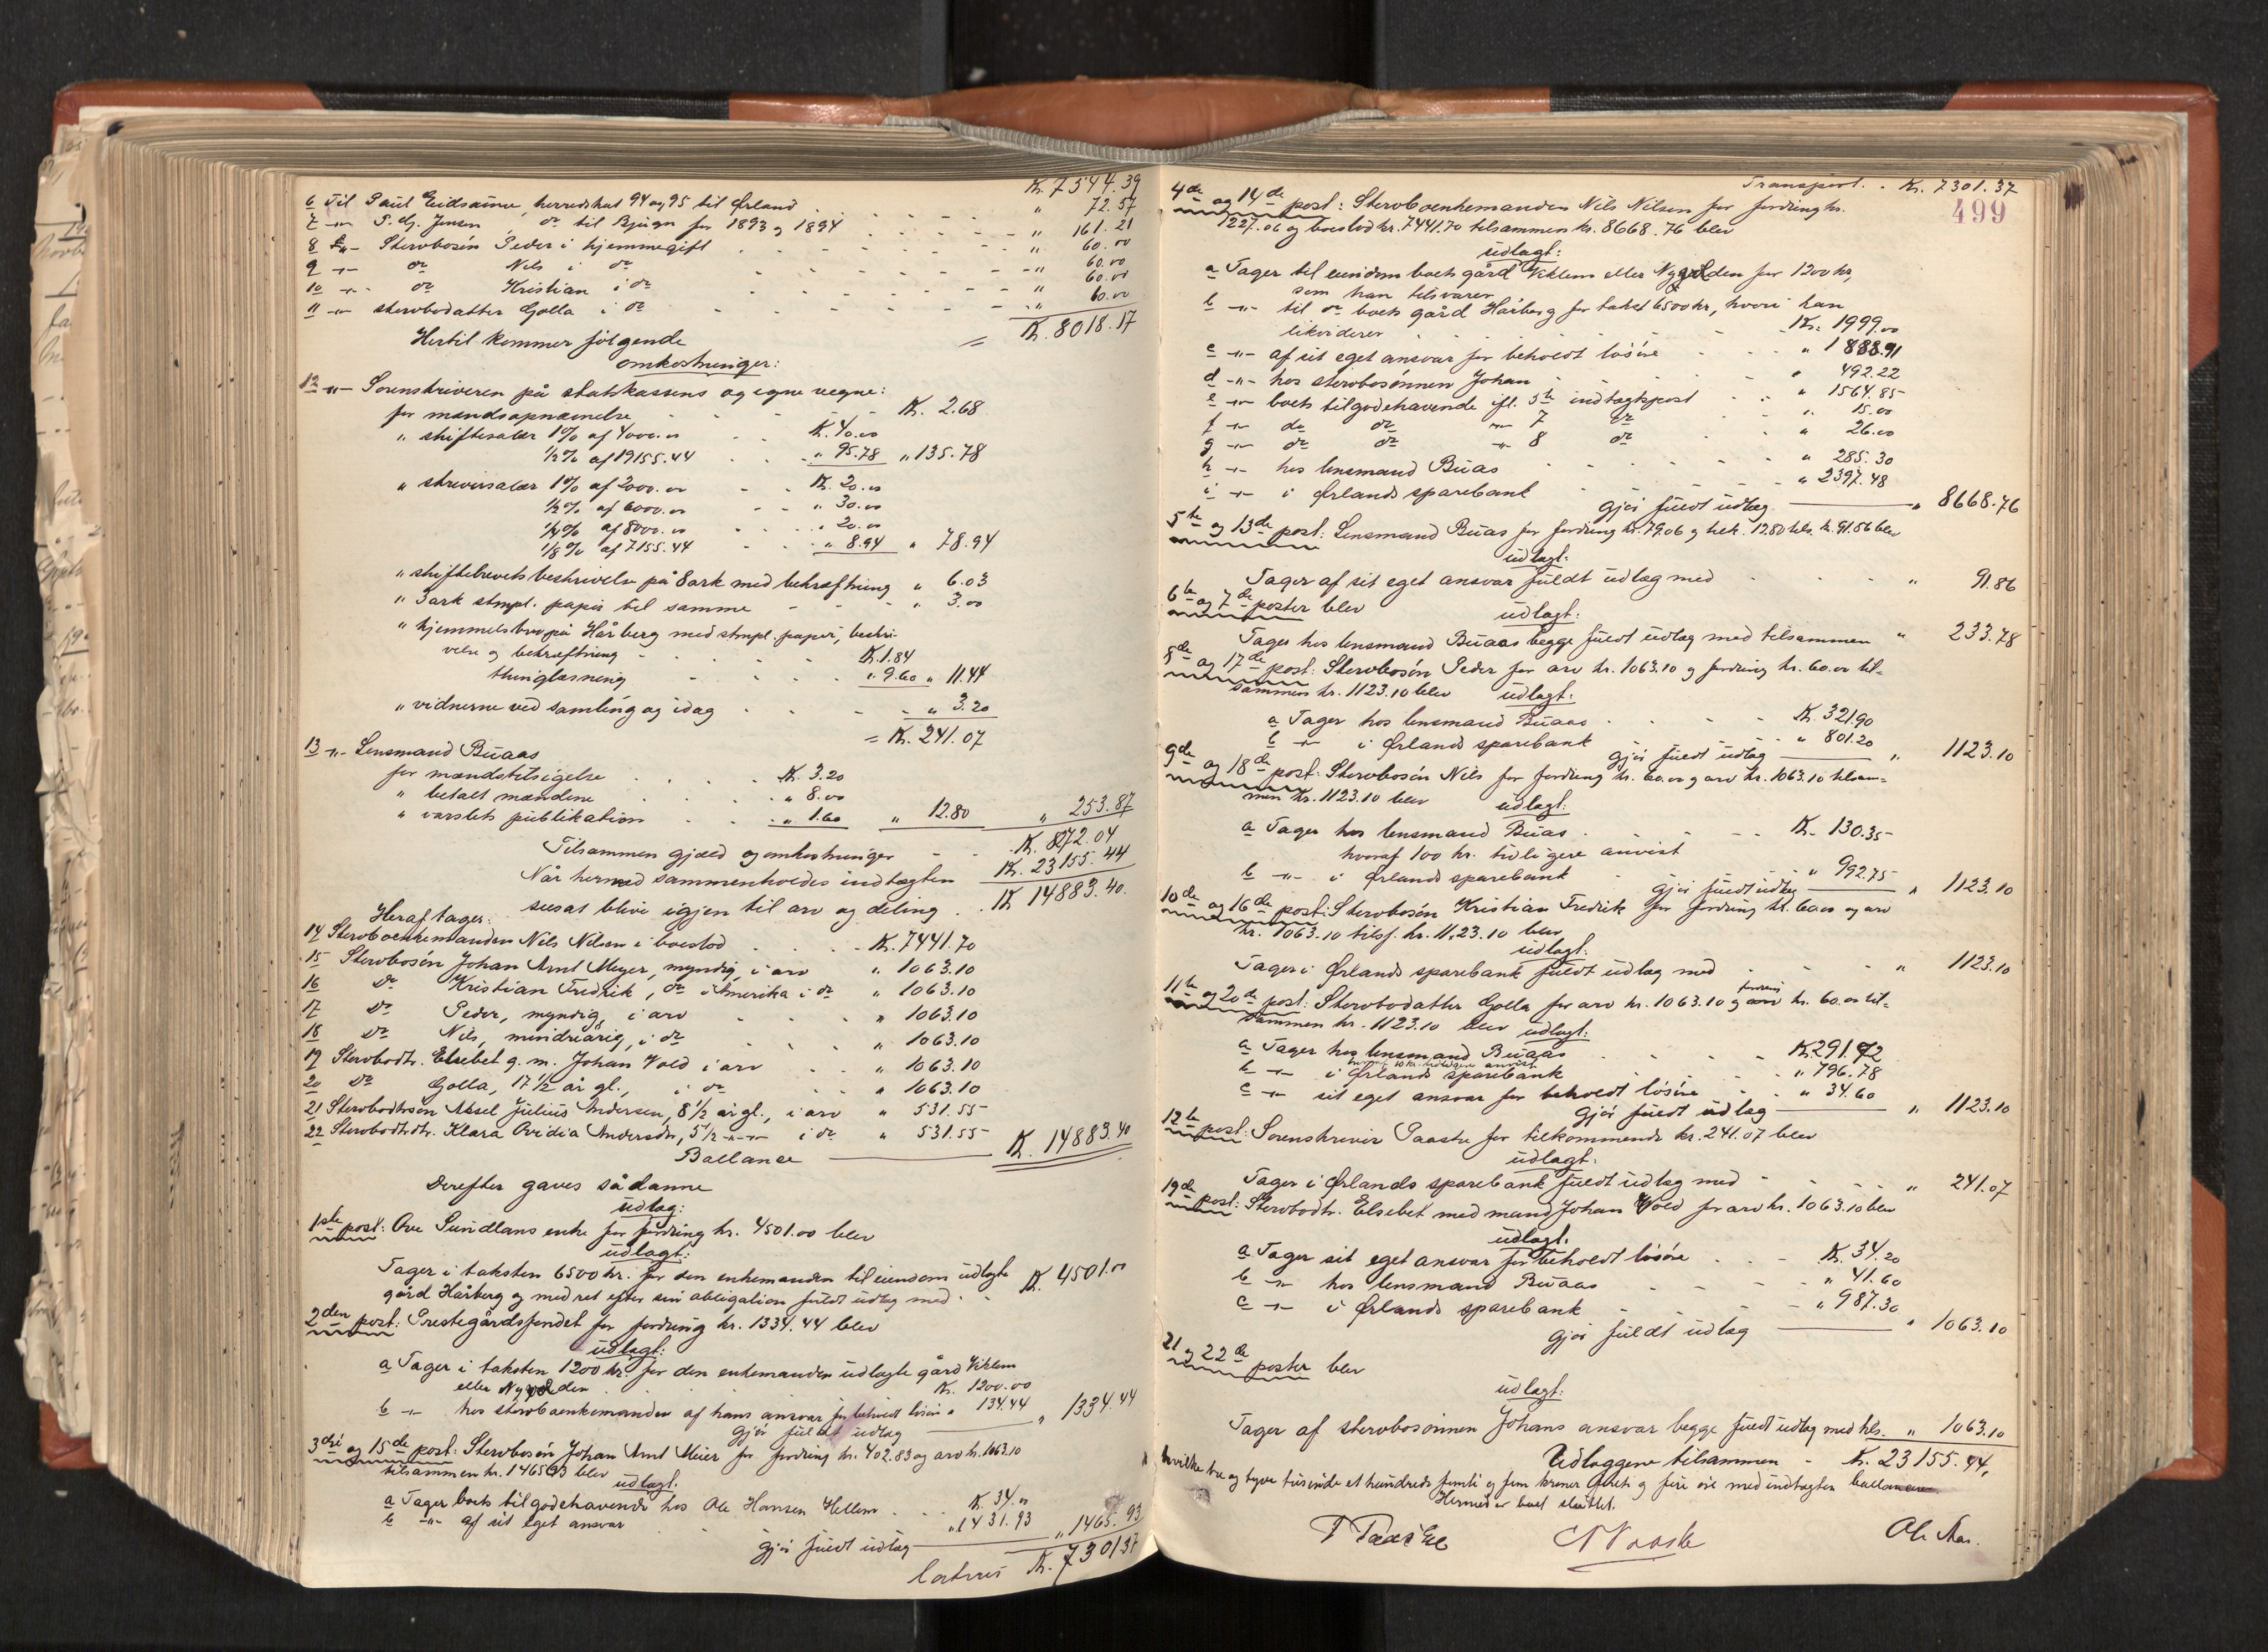 Kr. 7544.39
6 Til Paul Eidsaune, herredskat 94 og 95 til Ørland . . . . " 72.57
7 -"- S. G. Jensen, do til Bjugn for 1893 og 1894 . . . . " 161.21
8 -"- Stervbosøn Peder i hjemmegift . . . . " 60.00
9 -"- do Nils i do . . . . " 60.00
10 -"- do Kristian i do . . . . " 60.00
11 -"- stervbodatter Golla i do . . . . " 60.00
Hertil kommer følgende = Kr. 8018.17
omkostninger:
12 -"- Sorenskriveren på statskassens og egne vegne:
for mandsopnævnelse - - - - Kr. 2.68
" skiftesalær 1% af 4000.00 . . Kr. 40.00
1/2% af 19155.44 . . " 95.78 " 135.78
" skriversalær 1% af 2000.00 - - Kr. 20.00
1/2% af 6000.00 - - " 30.00
1/4% af 8000.00 . . " 20.00
1/8% af 7155.44 . . " 8.94 " 78.94
" skiftebrevets beskrivelse på 8 ark med bekræftning " 6.03
" 3 ark stmpl. papir til samme - - - " 3.00
" hjemmelsbrev på Hårberg med stmpl. papir, beskri-
velse og bekræftning . . . . Kr. 1.84
thinglæsning . . . . " 9.60 " 11.44
" vidnerne ved samling og idag . . . - " 3.20
= Kr. 241.07
13 -"- Lensmand Buaas
for mandstilsigelse . . . . Kr. 3.20
" betalt mændene . . . . " 8.00
" varslets publikation . . . " 1.60 " 12.80 " 253.87
Tilsammen gjæld og omkostninger - - Kr. 8272.04
Når hermed sammenholdes indtægten Kr. 23155.44
sees at blive igjen til arv og deling . . Kr 14883.40.
Heraf tager:
14 Stervboenkemanden Nils Nilsen i boeslod . . . Kr. 7441.70
15 Stervbosøn Johan Arnt Meyer, myndig, i arv " 1063.10
16 Do Kristian Fredrik, do i Amerika i do " 1063.10
17 Do Peder, myndig, i arv . . . " 1063.10
18 Do Nils, mindreårig, i do . . . " 1063.10
19 Stervbodtr. Elsebet g. m. Johan Vold i arv . . " 1063.10
20 Do Golla, 17 1/2 år gl., i do . . " 1063.10
21 Stervbodtrsøn Aksel Julius Andersen, 8 1/2 år gl., i arv " 531.55
22 Stervbodtrdtr. Klara Ovidia Andersdtr., 5 1/2 -"-"- i do " 531.55
Ballance Kr. 14883.40
Derefter gaves sådanne
udlæg:
1ste post: Ove Sundlans enke for fordring kr. 4501.00 blev
udlagt:
Tager i taksten 6500 kr. for den enkemanden til eiendom udlagte
gård Hårberg og med ret efter sin obligation fuldt udlæg med - - Kr. 4501.00
2den post: Prestegårdsfondet for fordring kr. 1334.44 blev
udlagt:
a Tager i taksten 1200 kr. for den enkemanden udlagte gård Viklem
eller Nygjelden . . . . Kr. 1200.00
b -"- hos stervboenkemanden af hans ansvar for beholdt løsøre " 134.44
gjør fuldt udlæg " 1334.44
3die og 15de post: Stervbosøn Johan Arnt Meier for fordring kr. 402.83 og arv kr. 1063.10
tilsammen kr. 1465.93 blev
udlagt:
a Tager boets tilgodehavende hos Ole Hansen Hellem . . . Kr. 34.00
b -"- af sit eget ansvar . . . . " 1431.93
gjør fuldt udlæg " 1465.93
Latus Kr. 7301.37
Transport. . Kr. 7301.37
499
4de og 14de post: Stervboenkemanden Nils Nilsen for fordring kr.
1227.06 og boeslod kr. 7441.70 tilsammen kr. 8668.76 blev
udlagt:
a Tager til eiendom boets gård Viklem eller Nygjelden for 1200 kr,
som han tilsvarer
b -"- til do boets gård Hårberg for takst 6500 kr, hvori han
likviderer . . . . Kr. 1999.00
c -"- af sit eget ansvar for beholdt løsøre . . . " 1888.91
d -"- hos stervbosønnen Johan . . . " 492.22
e -"- boets tilgodehavende ifl. 5te indtægtspost . . " 1564.85
f -"- do do -"- 7 do . . " 15.00
g -"- do do -"- 8 do . . " 26.00
h -"- hos lensmand Buas . . . . " 285.30
i -"- i Ørlands sparebank . . . . " 2397.48
gjør fuldt udlæg " 8668.76
5te og 13de post: Lensmand Buas for fordring kr. 79.06 og bek. 12.80 tils. kr. 91.86 blev
udlagt:
Tager af sit eget ansvar fuldt udlæg med . . . . " 91.86
6te og 7de poster blev
udlagt:
Tager hos lensmand Buaas begge fuldt udlæg med tilsammen " 233.78
8de og 17de post: Stervbosøn Peder for arv kr. 1063.10 og fordring kr. 60.00 til-
sammen kr. 1123.10 blev udlagt:
a Tager hos lensmand Buaas . . . . Kr. 321.90
b -"- i Ørlands sparebank . . . . " 801.20
gjør fuldt udlæg " 1123.10
9de og 18de post: Stervbosøn Nils for fordring kr. 60.00 og arv kr. 1063.10 tilsam-
men kr. 1123.10 blev udlagt:
a Tager hos lensmand Buas . . . . Kr. 130.35
hvoraf 100 kr. tidligere anvist
b -"- i Ørlands sparebank . . . . " 992.75
gjør fuldt udlæg " 1123.10
10de og 16de post: Stervbosøn Kristian Fredrik for fordring kr. 60.00 og arv
kr. 1063.10 tils. kr. 1123.10 blev
udlagt:
Tager i Ørlands sparebank fuldt udlæg med . . . . " 1123.10
11te og 20de post: Stervbodatter Golla for arv kr. 1063.10 og arv fordring kr. 60.00 til-
sammen kr. 1123.10 blev udlagt:
a Tager hos lensmand Buaas . . . . Kr 291.72
tidligere anvist
b -"- i Ørlands sparebank . . . . " 796.78
c -"- sit eget ansvar for beholdt løsøre . . . " 34.60
gjør fuldt udlæg " 1123.10
12te post: Sorenskriver Paaske for tilkommende kr. 241.07 blev
udlagt:
Tager i Ørlands sparebank fuldt udlæg med . . . . " 241.07
19de post: Stervbodtr. Elsebet med mand Johan Vold for arv kr. 1063.10 blev
udlagt:
a Tager sit eget ansvar for beholdt løsøre . . . Kr. 34.20
b -"- hos lensmand Buaas . . . . " 41.60
c -"- i Ørlands sparebank . . . . " 987.30
gjør fuldt udlæg " 1063.10
21 og 22de poster blev
udlagt:
Tager af stervbosønnen Johans ansvar begge fuldt udlæg med tils. " 1063.10
Udlæggene tilsammen - Kr. 23155.44,
hvilke tre og tyve tusinde et hundrede femti og fem kroner firti og fire øre med indtægten ballancere
Hermed er boet sluttet.
P Paaske Ole